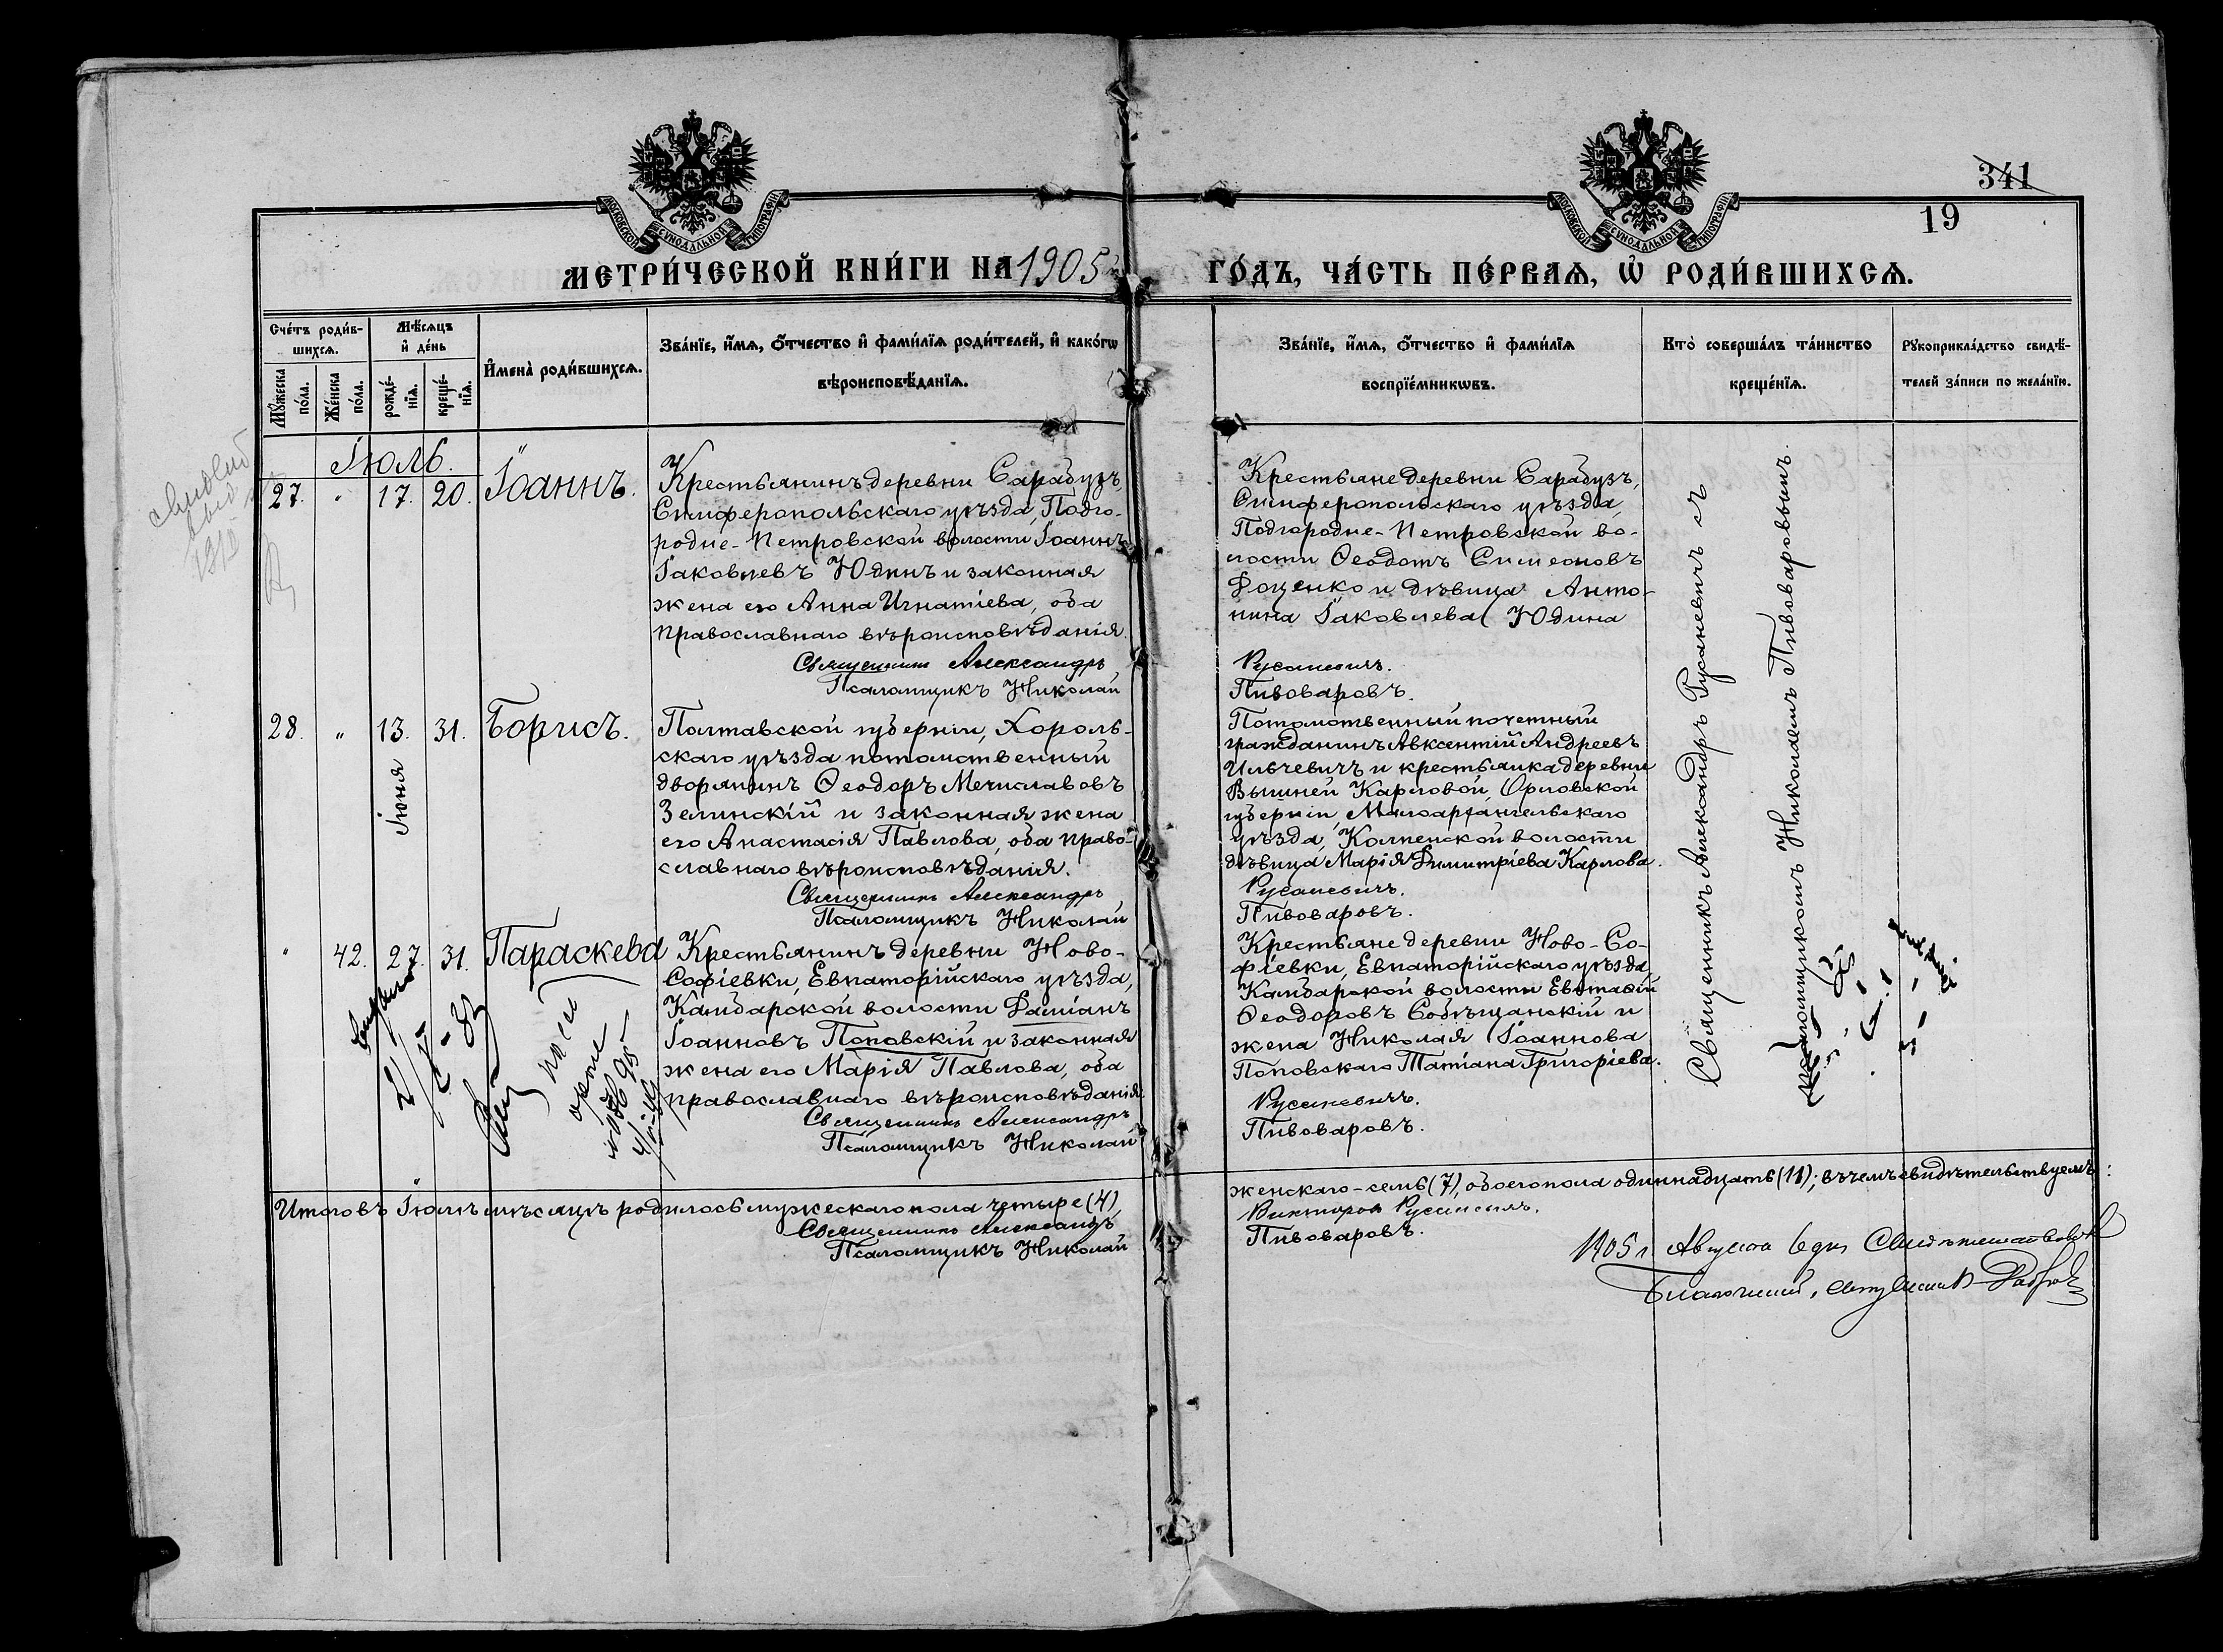 341
19
МОСКОВСКОЙ СѴНОДАЛЬНОЙ ТИПОГРАФІИ
МОСКОВСКОЙ СѴНОДАЛЬНОЙ ТИПОГРАФІИ
МЕТРИ́ЧЕСКОЙ КНИ́ГИ НА 1905й
ГО́ДЪ, ЧА́СТЬ ПЕ́РВАѦ, Ѡ РОДИ́ВШИХСѦ.
Сче́тъ роди́в-
шихсѧ.
Мꙋ́жеска
по́ла.
Же́нска
по́ла.
Мѣ́сѧцъ
и҆ де́нь
рожде́-
нїѧ.
креще́-
нїѧ.
И҆мена̀ роди́вшихсѧ.
Зва́нїе, и҆́мѧ, о҆́тчество и҆ фами́лїѧ роди́телей, и҆ како́гѡ
вѣроисповѣ́данїѧ.
Зва́нїе, и҆́мѧ, о҆́тчество и҆ фами́лїѧ
воспрїе́мникѡвъ.
Кто̀ соверша́лъ та́инство
креще́нїѧ.
Рꙋкоприкла́дство свидѣ́-
телей за́писи по жела́нїю.
Іюль.
27. " 17. 20. Іоаннъ.
Крестьянинъ деревни Сарабузъ,
Симферопольскаго уѣзда, Подго-
родне-Петровской волости Іоаннъ
Іаковлевъ Юдинъ и законная
жена его Анна Игнатіева, оба
православнаго вѣроисповѣданія.
Священникъ Александръ
Псаломщикъ Николай
Крестьяне деревни Сарабузъ,
Симферопольскаго уѣзда,
Подгородне-Петровской во-
лости Ѳеодотъ Симеоновъ
Доценко и дѣвица Анто-
нина Іаковлева Юдина
Русаневичъ.
Пивоваровъ.
28. " 13. 31. Борисъ.
Іюня
Полтавской губерніи, Хороль-
скаго уѣзда потомственный
дворянинъ Ѳеодоръ Мечиславовъ
Зелинскій и законная жена
его Анастасія Павлова, оба право-
славнаго вѣроисповѣданія.
Священникъ Александръ
Псаломщикъ Николай
Потомственный почетный
гражданинъ Авксентій Андреевъ
Ильчевичъ и крестьянка деревни
Вышней Карловой, Орловской
губерніи, Малоархангельскаго
уѣзда, Колпенской волости
дѣвица Марія Димитріева Карлова.
Русаневичъ.
Пивоваровъ.
" 42. 27. 31. Параскева
Крестьянинъ деревни Ново-
Софіевки, Евпаторійскаго уѣзда,
Камбарской волости Даміанъ
Іоанновъ Поповскій и законная
жена его Марія Павлова, оба
православнаго вѣроисповѣданія.
Священникъ Александръ
Псаломщикъ Николай
Крестьяне деревни Ново-Со-
фіевки, Евпаторійскаго уѣзда,
Камбарской волости Евстафій
Ѳеодоровъ Собѣщанскій и
жена Николая Іоаннова
Поповскаго Татіана Григоріева.
Русаневичъ.
Пивоваровъ.
Священникъ Александръ Русаневичъ съ
псаломщикомъ Николаемъ Пивоваровымъ.
Итого въ Іюлѣ мѣсяцѣ родилось мужескаго пола четыре (4),
Священникъ Александръ
Псаломщикъ Николай
женскаго - семь (7), обоего пола одиннадцать (11); въ чемъ свидѣтельствуемъ:
Викторовъ Русаневичъ.
Пивоваровъ.
1905 г. Августа 6 дня Свидѣтельствовалъ
Благочинный, священникъ